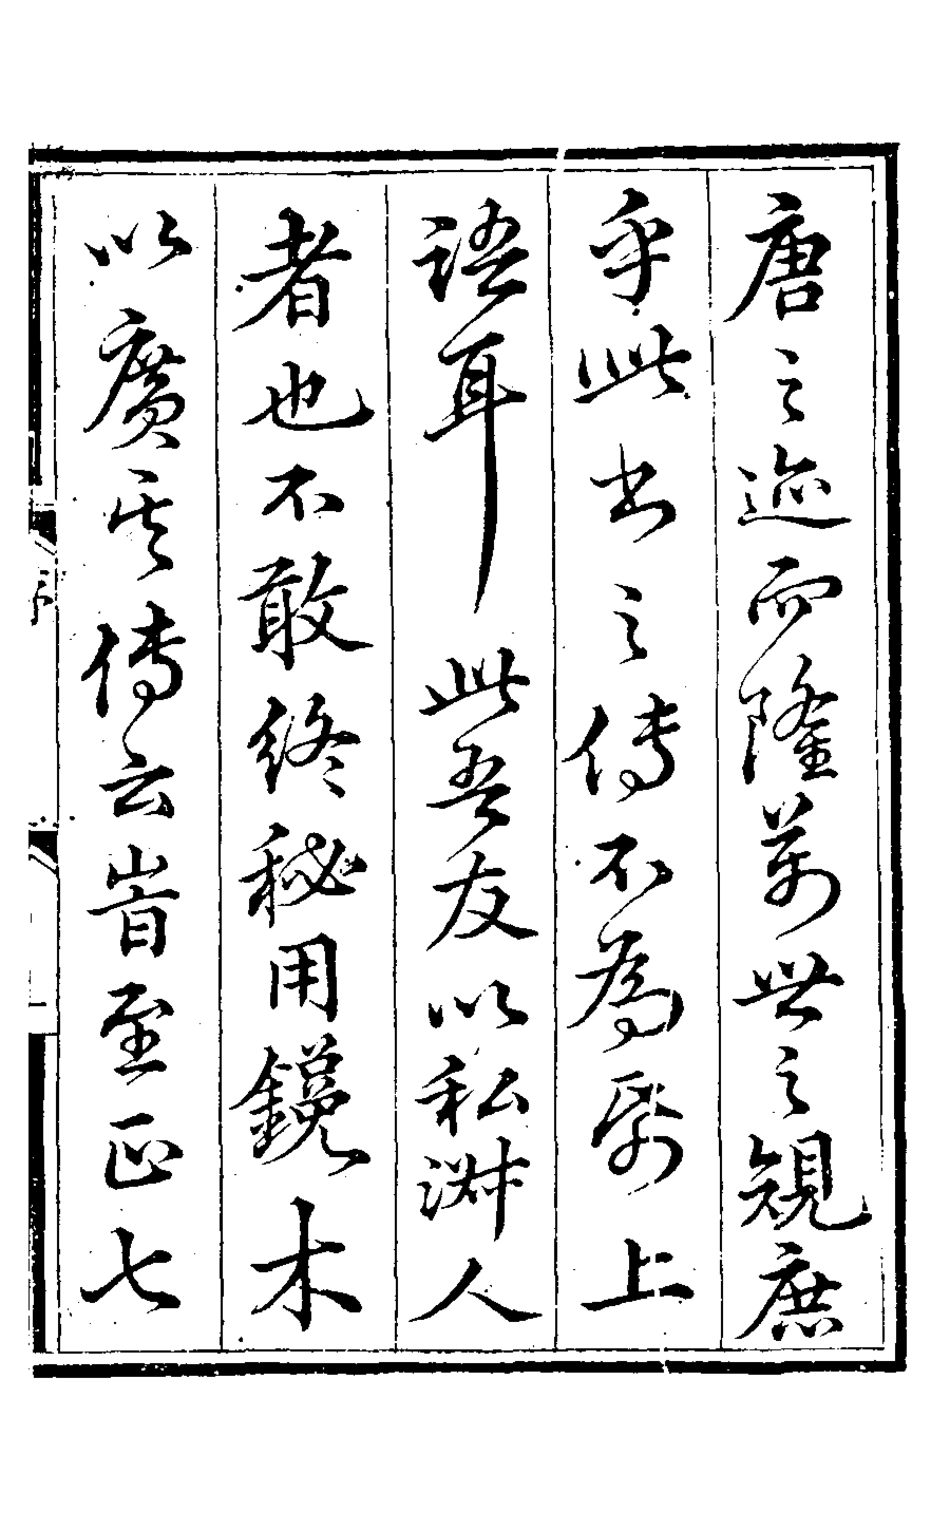 唐之迹而隆萬世之規庶
乎此書之傳不為帋上
語耳此吾友以私淑人
者也不敢終秘用鋟木
以廣其傳云旹至正七